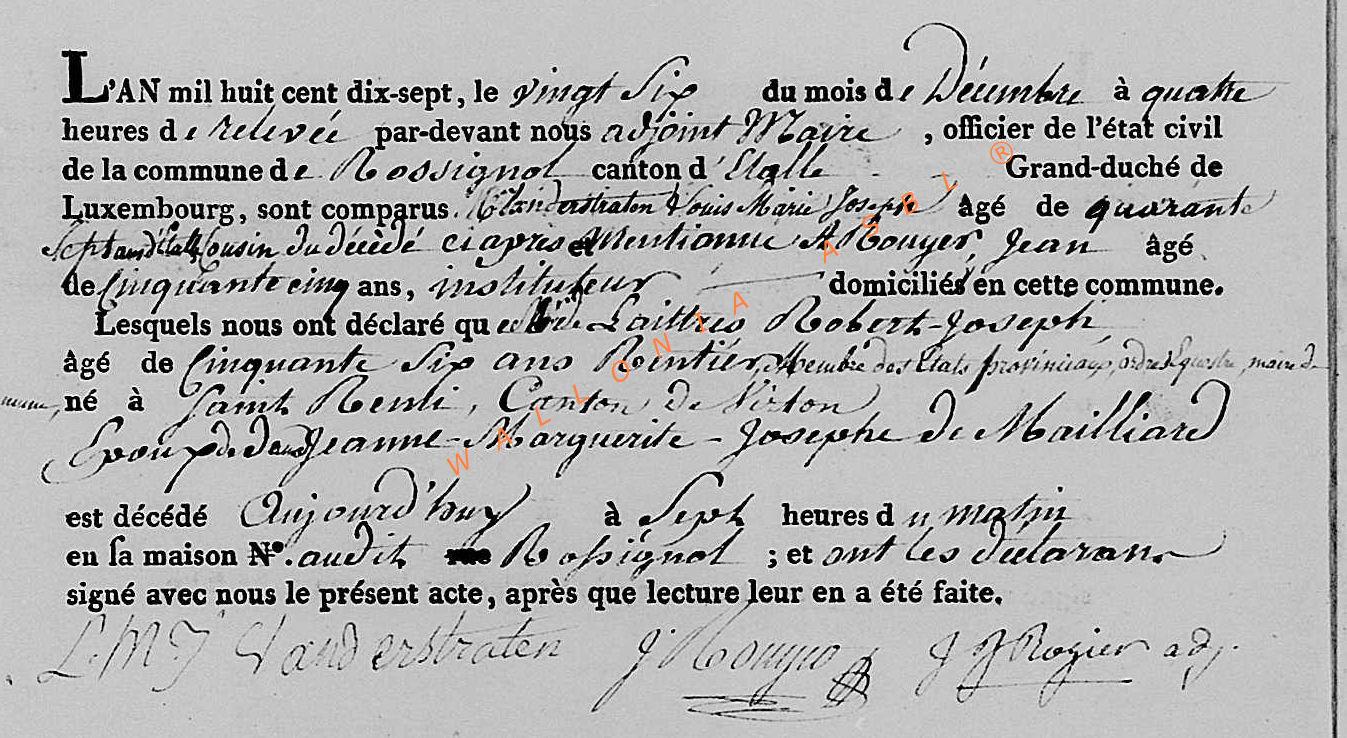 L'AN mil huit cent dix-sept, le vingt Six du mois de Décembre à quatre
heures de relevée par-devant nous adjoint Maire, officier de l'état civil
de la commune de Rossignol canton d'Etalle Grand-duché de
Luxembourg, sont comparus Vanderstraten Louis Marie Joseph âgé de quarante
Sept ans Cousin du décédé ci après mentionné et Rouyer Jean âgé
de Cinquante cinq ans, instituteur domiciliés en cette commune.
Lesquels nous ont déclaré que de Laittres Robert-Joseph
âgé de Cinquante Six ans Rentier, Membre des Etats provinciaux, ordre Equestre, maire de
né à Saint Remi, Canton de Virton
Epoux de Jeanne-Marguerite-Josephe de Mailliard
est décédé Aujourd'huy à Sept heures du matin
en sa maison N°. audit Rossignol ; et ont les déclarans
signé avec nous le présent acte, après que lecture leur en a été faite.
L. M J Vanderstraten J Rouyer J J Rogier adj.
WALLONIA ASBL ®